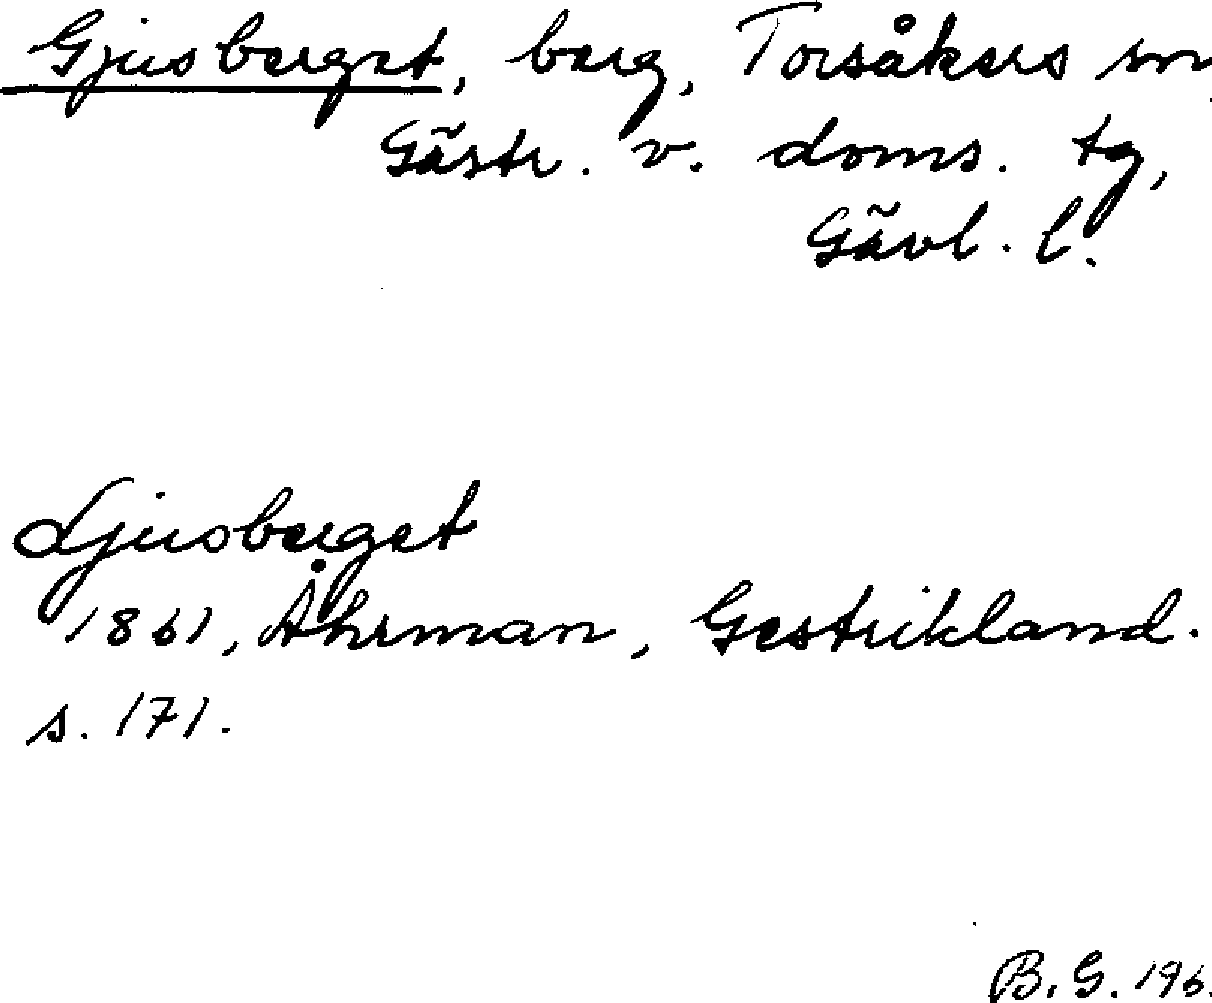 Gjusberget, berg, Torsåkers sn
Gästr. v. doms. tg,
Gävl. l.
Ljusberget
1861, Åhrman, Gestrikland.
s. 171.
B. G. 196